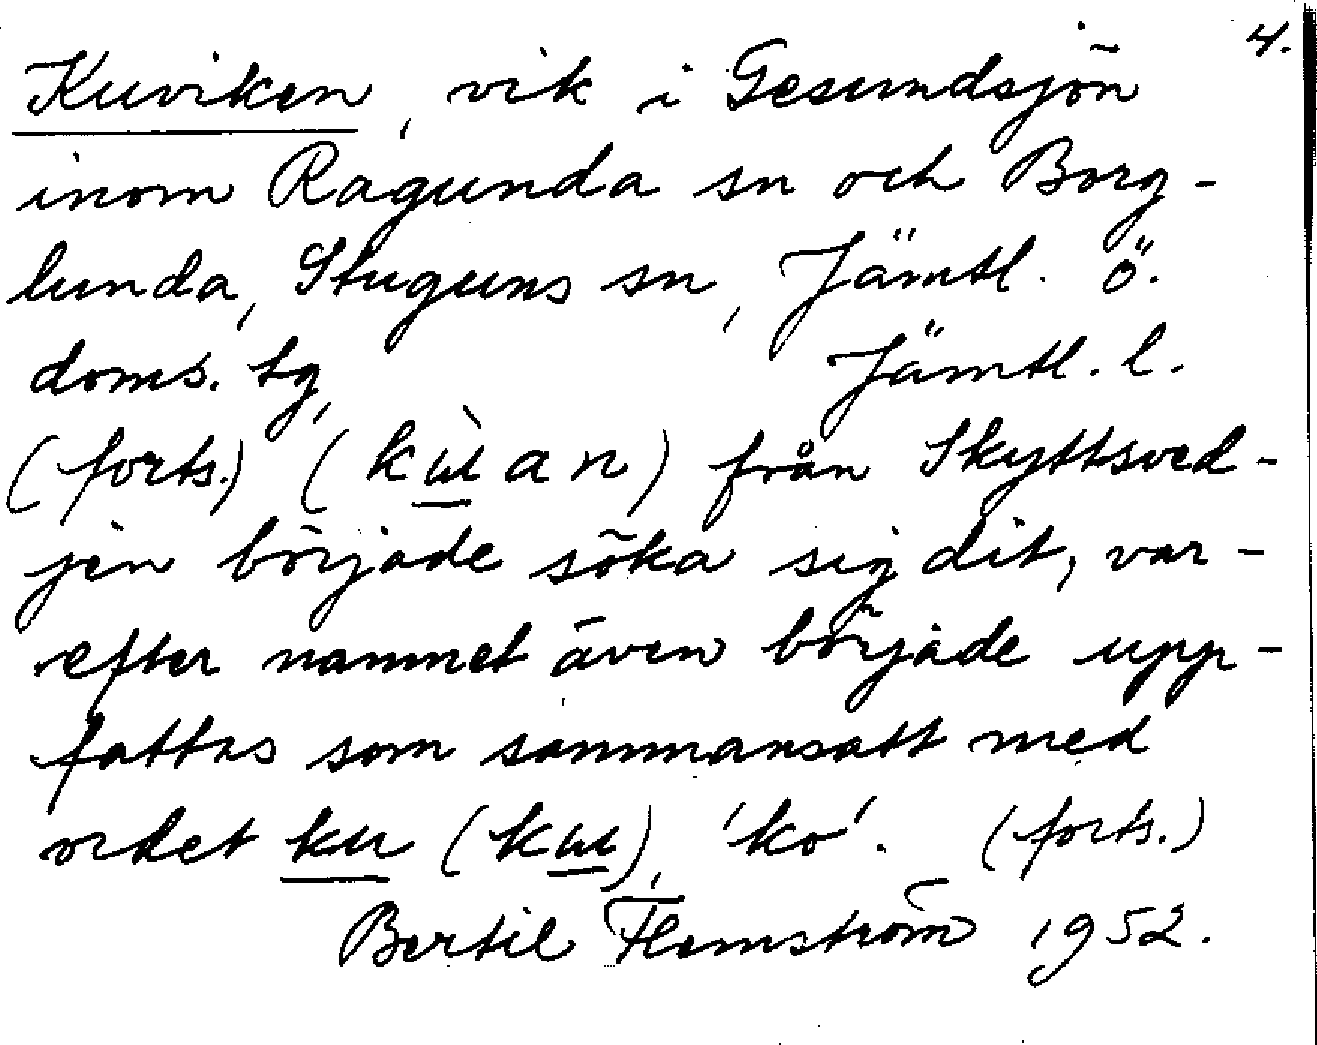 4.
Kuviken, vik i Gesundsjön
inom Ragunda sn och Borg-
lunda, Stuguns sn, Jämtl. ö.
doms. tg, Jämtl. l.
(forts.) (kɯ̀an) från Skyttsved-
jen började söka sig dit, var-
efter namnet även började upp-
fattas som sammansatt med
ordet ku (kɯ), 'ko'. (forts.)
Bertil Flemström 1952.